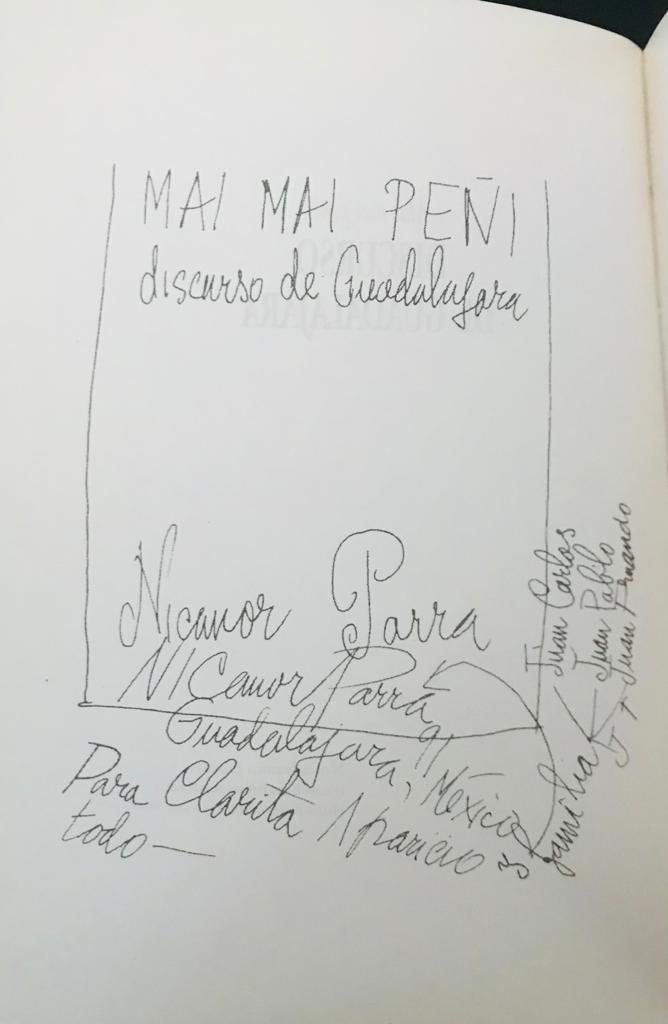 MAI MAI PEÑI
discurso de Guadalajara
DISCURSO
DE GUADALAJARA
Nicanor Parra
NICanor Parra
Guadalajara, 91
México
Para Clarita Aparicio y
todo —
familia
Juan Carlos
Juan Pablo
Juan Fernando